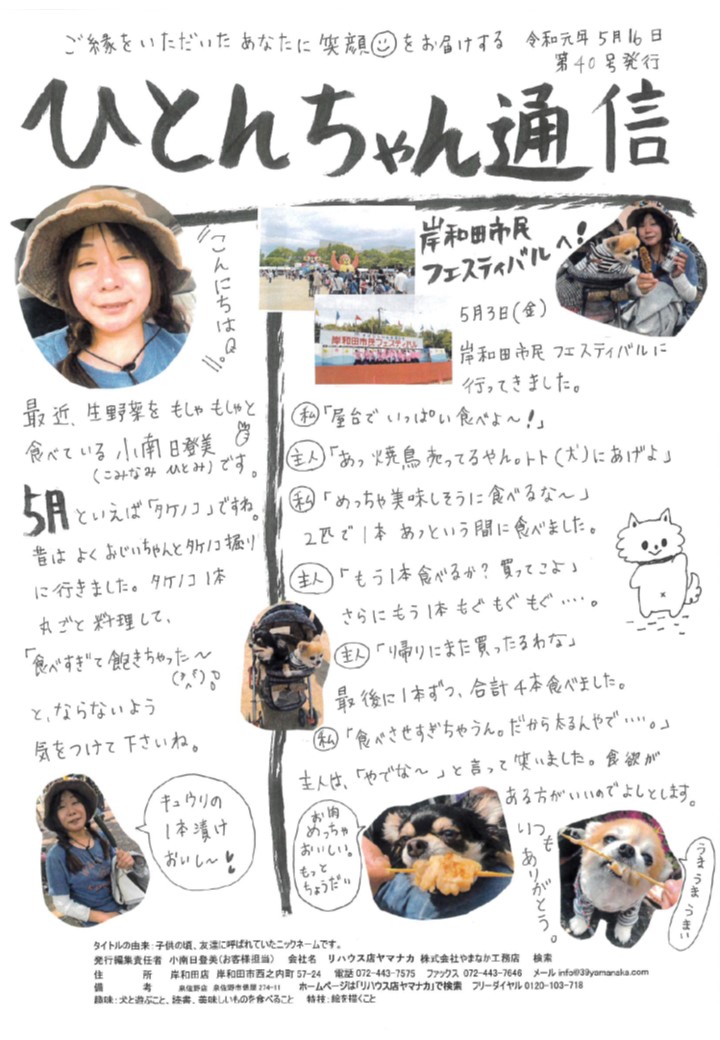 ご縁をいただいた あなたに 笑顔をお届けする
令和元年 5月16日
第40号発行
ひとんちゃん通信
こんにちは
最近、生野菜を もしゃもしゃと
食べている 小南日登美
(こみなみ ひとみ)です。
5月といえば「タケノコ」ですね。
昔は よくおじいちゃんとタケノコ掘り
に行きました。タケノコ1本
丸ごと料理して、
「食べすぎて飽きちゃった〜
と、ならないよう
気をつけて下さいね。
キュウリの
1本漬け
おいし〜
岸和田市民
フェスティバルへ!
岸和田市民フェスティバル
5月3日(金)
岸和田市民フェスティバルに
行ってきました。
私「屋台で いっぱい食べよ〜!」
主人「あっ焼鳥売ってるやん。トト(犬)にあげよ」
私「めっちゃ美味しそうに食べるな〜」
2匹で1本 あっという間に食べました。
主人「もう1本食べるか?買ってこよ」
さらにもう1本 もぐもぐもぐ・・・・。
主人「帰りにまた買ったるわな」
最後に1本ずつ、合計4本食べました。
私「食べさせすぎちゃうん。だから太るんやで・・・・。」
主人は、「やでな〜」と言って笑いました。食欲が
ある方がいいのでよしとします。
お肉
めっちゃ
おいしい。
もっと
ちょうだい
いつも
ありがとう。
うまうまうまい
タイトルの由来:子供の頃、友達に呼ばれていたニックネームです。
発行編集責任者 小南日登美(お客様担当) 会社名 リハウス店ヤマナカ 株式会社やまなか工務店 検索
住 所 岸和田店 岸和田市西之内町57-24 電話072-443-7575 ファックス 072-443-7646 メールinfo@39yamanaka.com
備 考 泉佐野店 泉佐野市俵屋274-11 ホームページは「リハウス店ヤマナカ」で検索 フリーダイヤル0120-103-718
趣味:犬と遊ぶこと、読書、美味しいものを食べること 特技:絵を描くこと